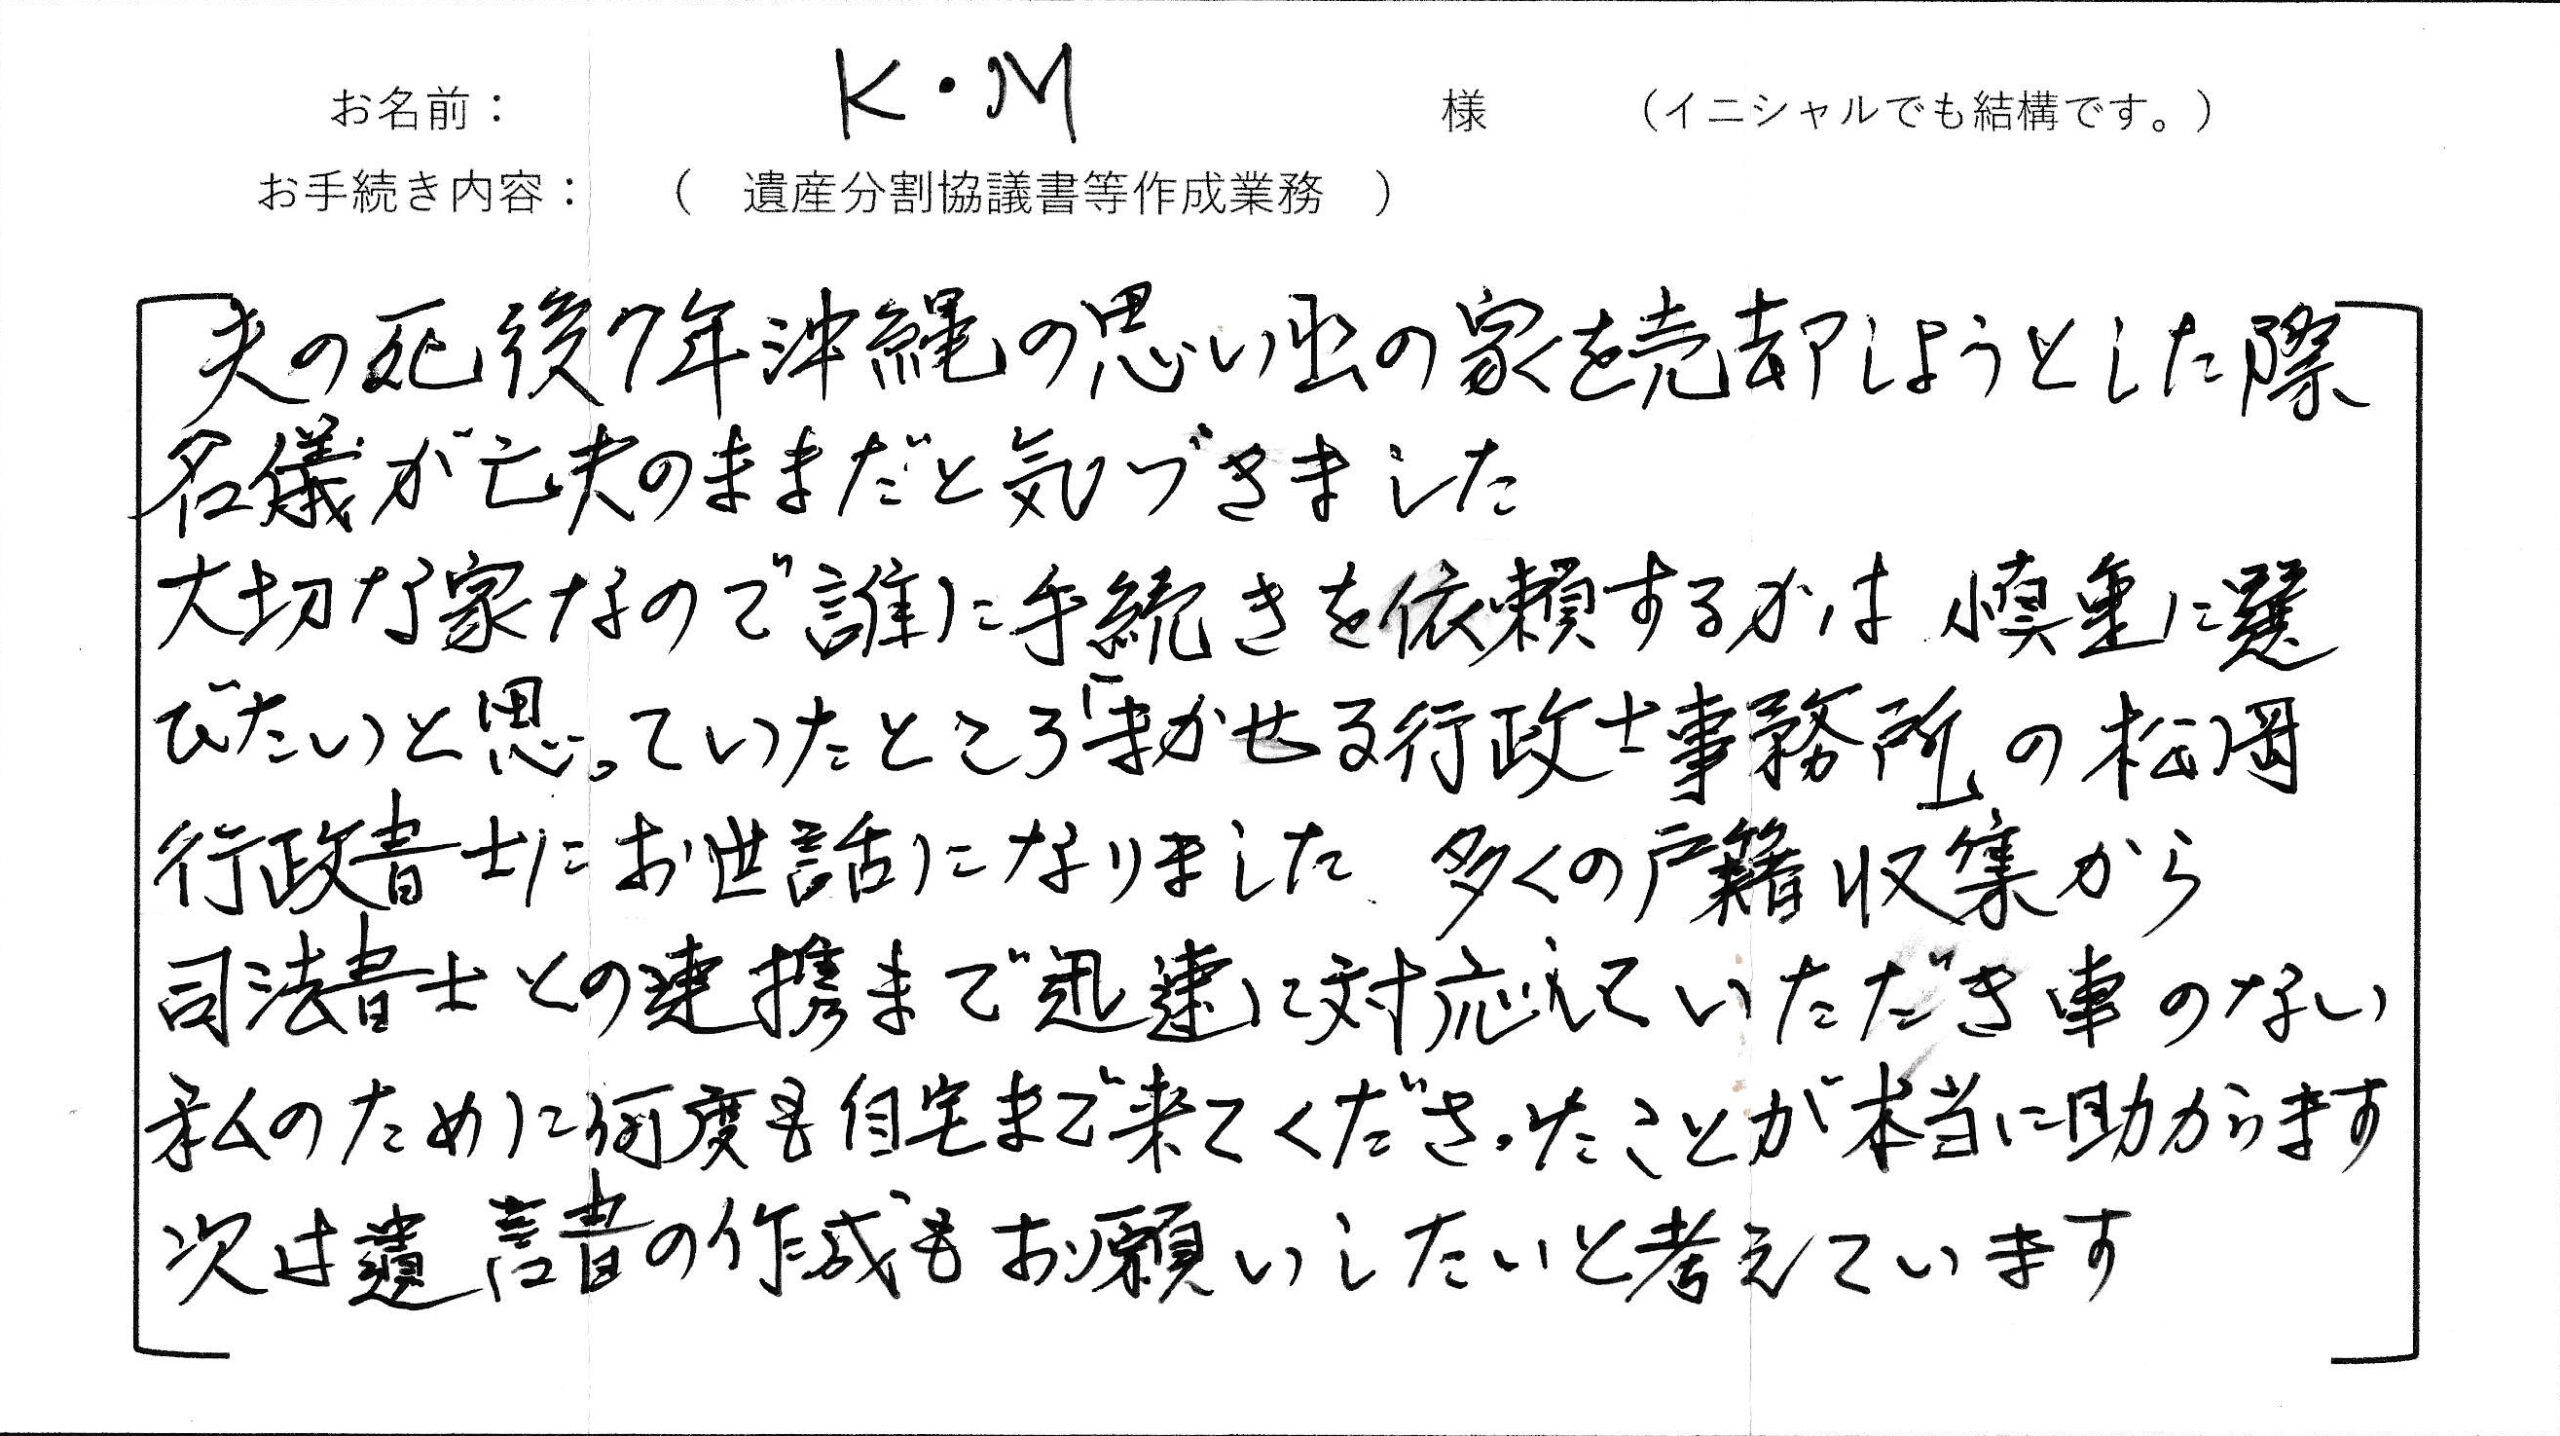 お名前： K・M 様 （イニシャルでも結構です。）
お手続き内容： （ 遺産分割協議書等作成業務 ）
夫の死後7年沖縄の思い出の家を売却しようとした際
名儀が亡夫のままだと気づきました
大切な家なので誰に手続きを依頼するかは慎重に選
びたいと思っていたところ「まかせる行政士事務所」の松岡
行政書士にお世話になりました 多くの戸籍収集から
司法書士との連携まで迅速に対応していただき車のない
私のために何度も自宅まで来てくださったことが本当に助かります
次は遺言書の作成もお願いしたいと考えています